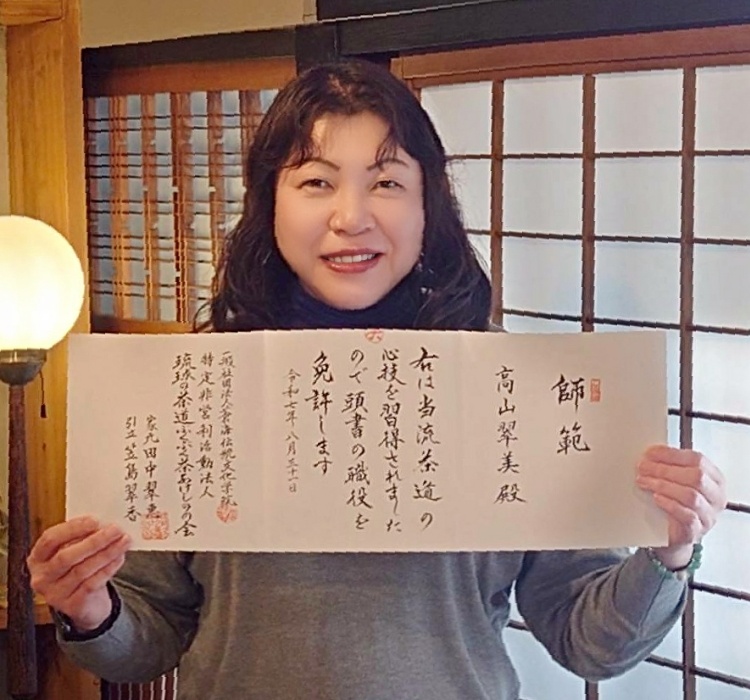 師範
高山翠美殿
右は当流茶道の
心技を習得されました
ので頭書の職役を
免許します
令和七年八月三十一日
一般社団法人東海伝統文化学院
特定非営利活動法人
琉球の茶道ぶくぶく茶あけしのの会
家元田中翠恵
引立笠島翠香